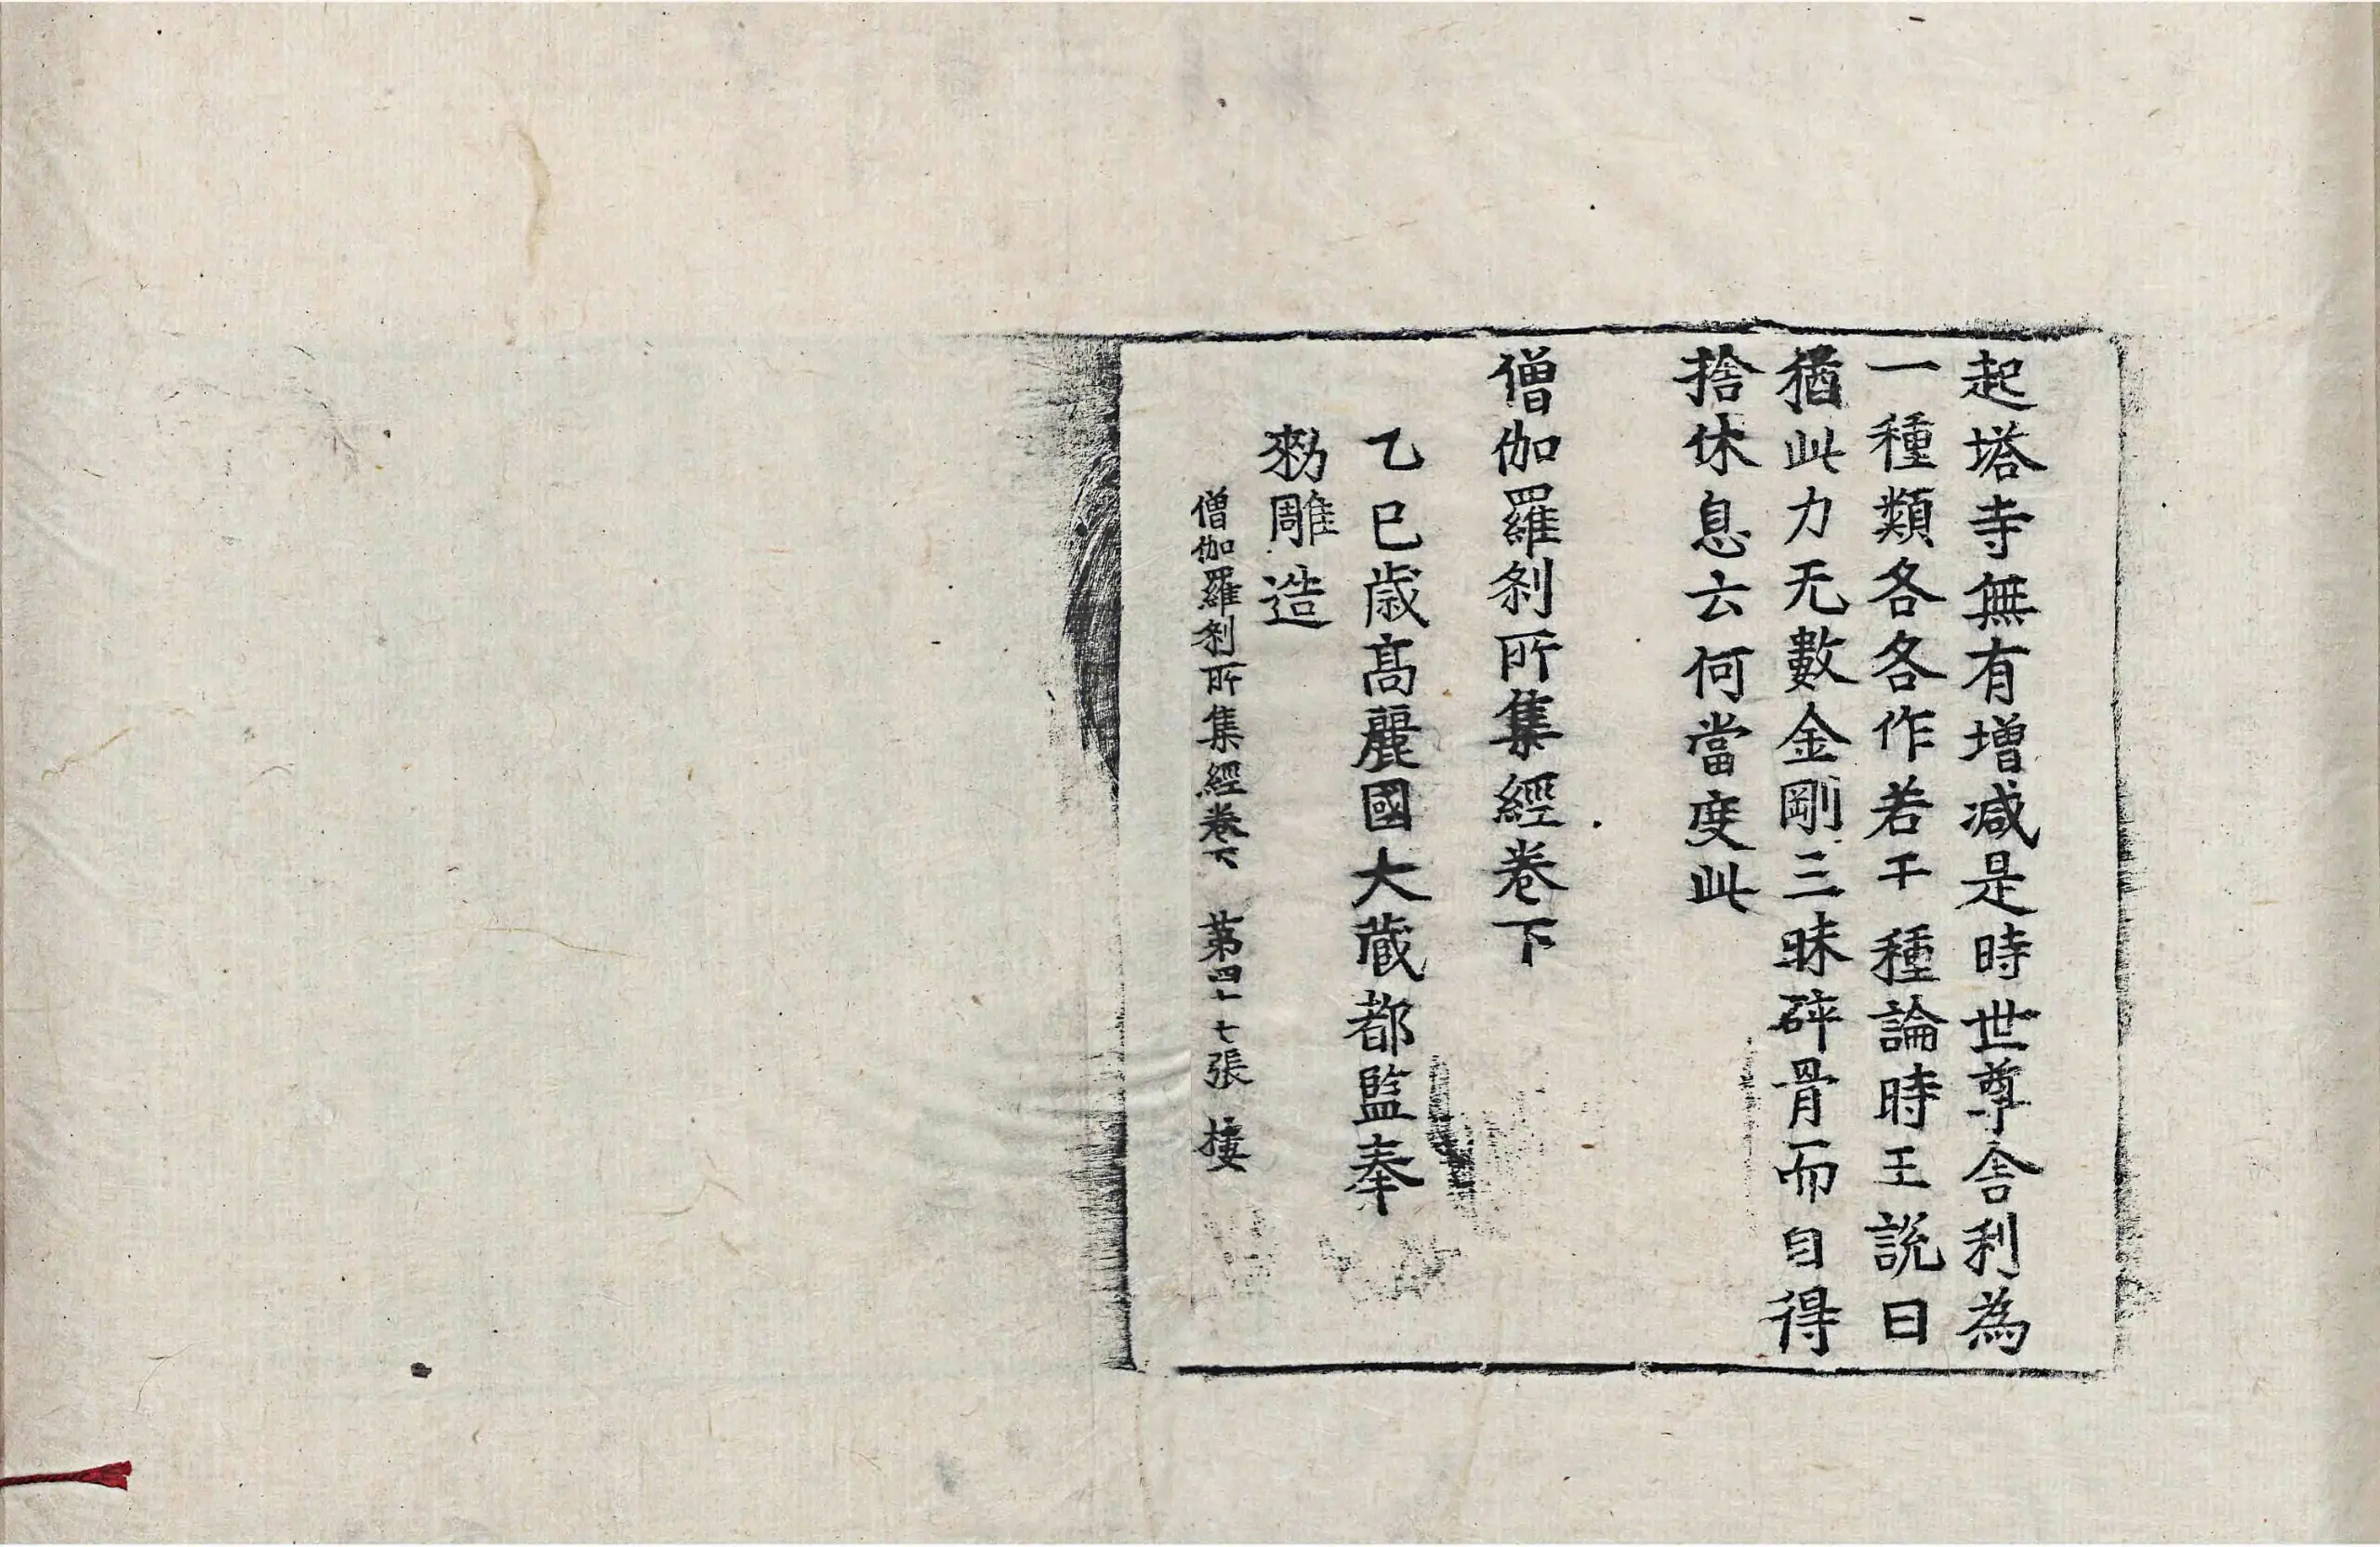 起塔寺無有增減是時世尊舍利為
一種類各各作若干種論時王說曰
猶此力无數金剛三昧碎骨而自得
捨休息云何當度此
僧伽羅刹所集經卷下
乙巳歲高麗國大藏都監奉
勑雕造
僧伽羅刹所集經卷下 第四十七張 捿